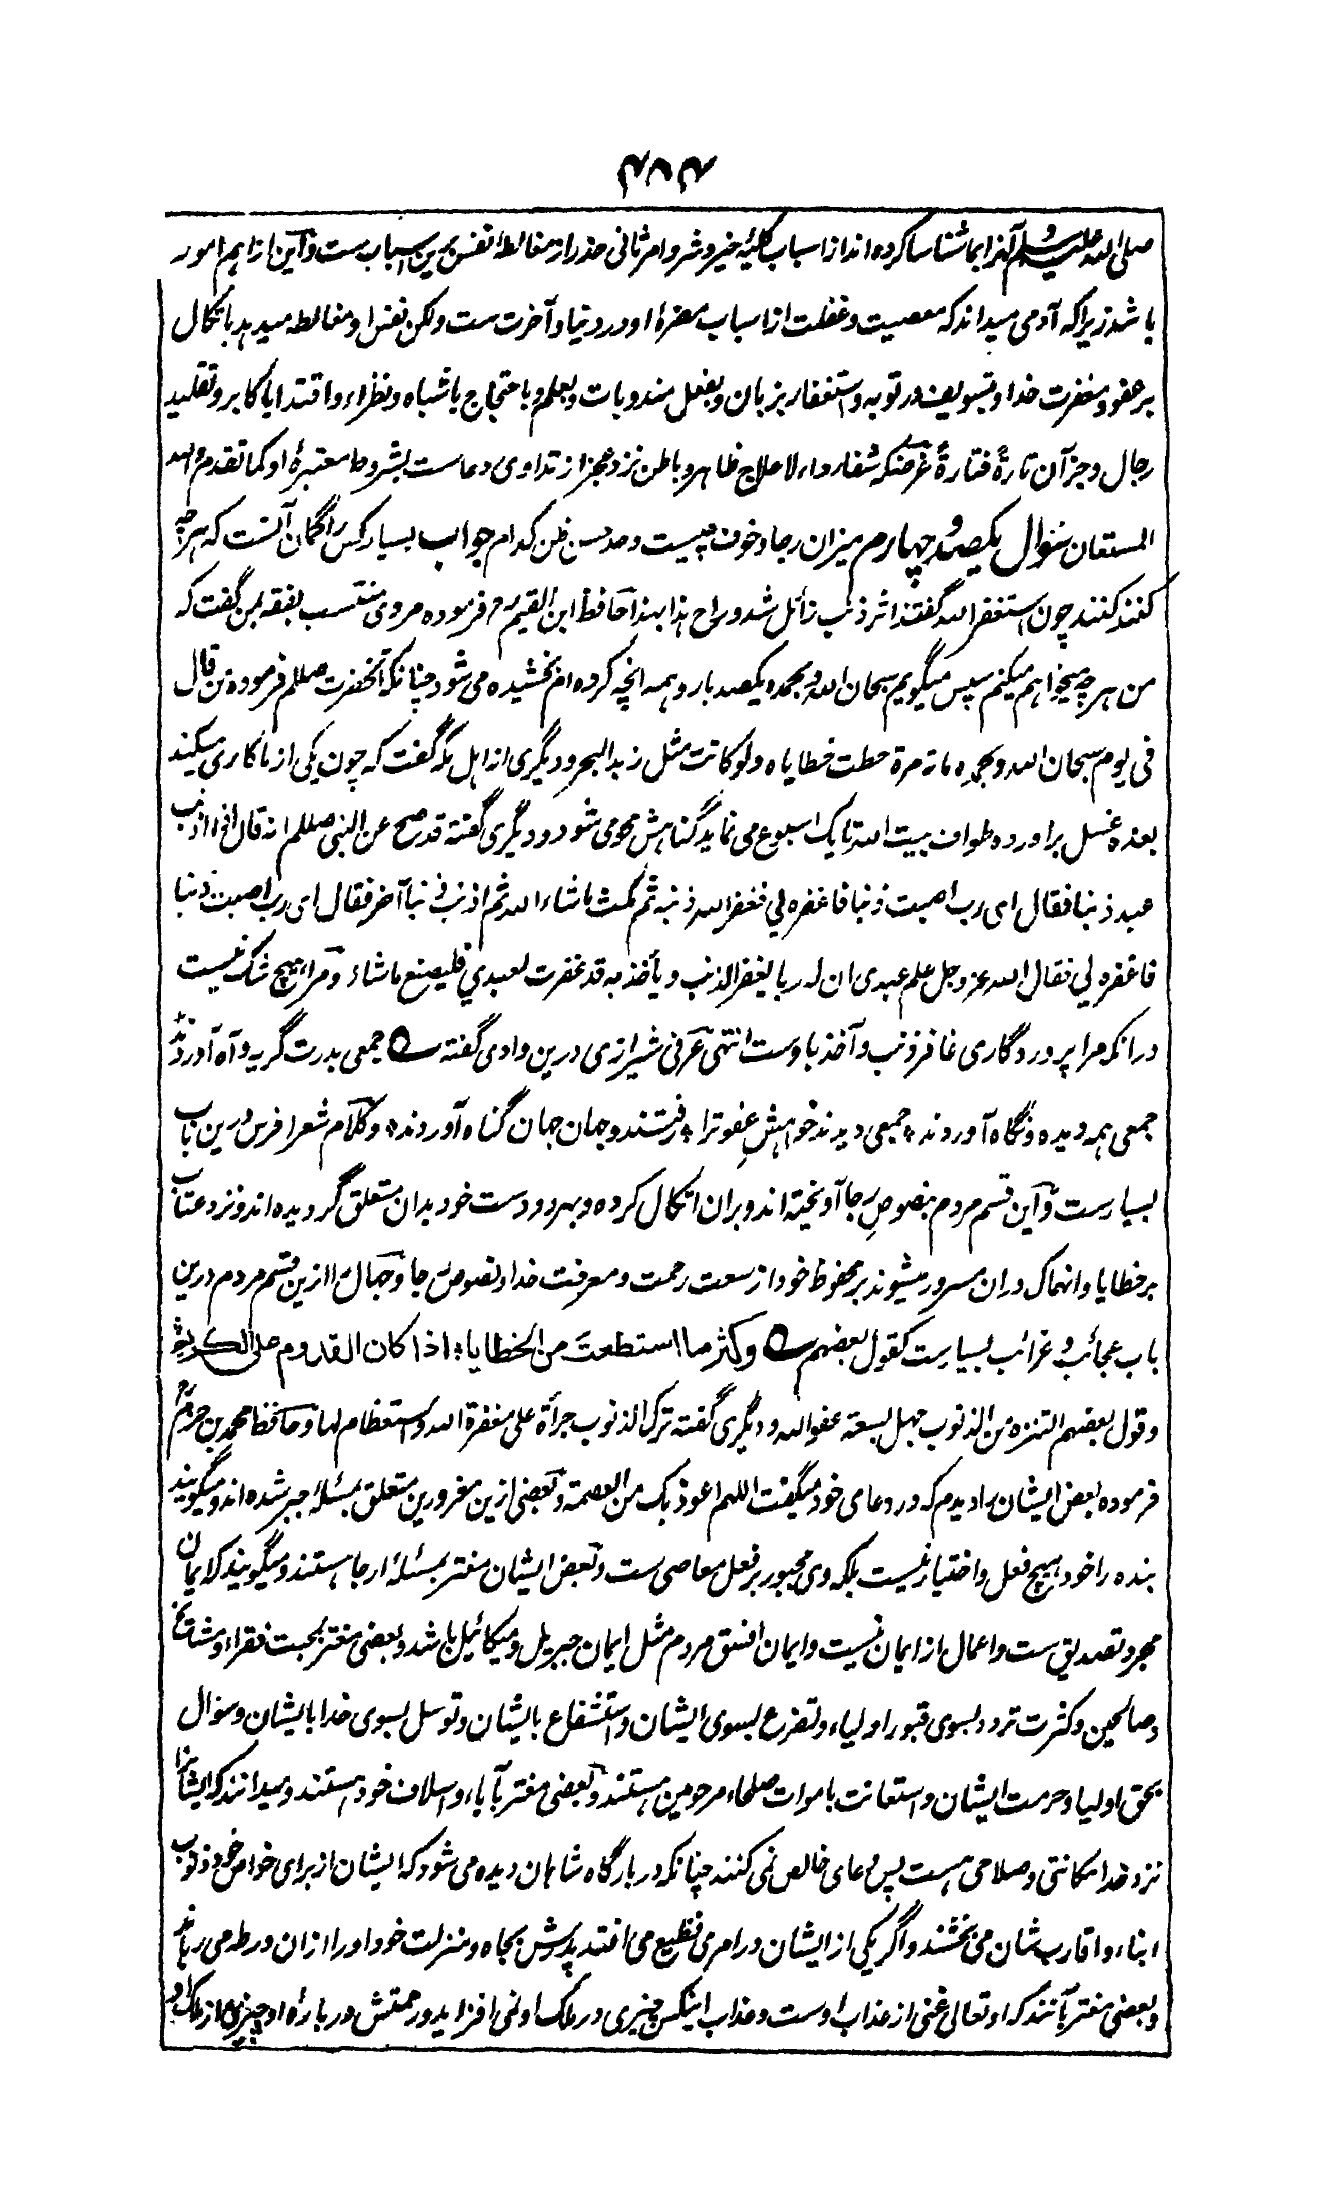 ۴۵۴
صلی الله علیه وسلم آنرا بما شناسا کرده اند از اسباب کلیهٔ خیر و شر و امر ثانی حذر از مغالطهٔ نفس برین اسباب ست و این از اهم امور
باشد زیرا که آدمی میداند که معصیت و غفلت از اسباب مضرهٔ او در دنیا و آخرت ست ولکن نفس او مغالطه میدهد باتکال
بر عفو و مغفرت خدا و تبسویف در توبه و استغفار بزبان و بفعل مندوبات و بعلم و باحتجاج باشباه و نظراء و اقتدا باکابر و تقلید
رجال و جز آن تارةً فتارةً غرضکه شفاء داء لا علاج ظاهر و باطن نزد عجز از تداوی دعاست بشروط معتبرهٔ او کما تقدم والله
المستعان سوال یکصد و چهارم میزان رجا و خوف چیست و حد حسن ظن کدام جواب بسیار کس را گمان آنست که هر چه
کنند کنند چون استغفر الله گفتند اثر ذنب زائل شد و راح هذا بهذا حافظ ابن القیم رح فرموده مردی منتسب بفقه بمن گفت که
من هر چه میخواهم میکنم سپس میگویم سبحان الله وبحمده یکصد بار و همه انچه کرده ام بخشیده می شود چنانکه آنحضرت صللم فرموده من قال
فی یوم سبحان الله وبحمده مائة مرة حطت خطایاه ولو کانت مثل زبد البحر و دیگری از اهل مکه گفت که چون یکی از ما کاری میکند
بعده غسل برآورده طواف بیت الله تا یک اسبوع می نماید گناهش محو می شود و دیگری گفته قد صح عن النبی صللم انه قال اذا اذنب
عبد ذنبا فقال ای رب اصبت ذنبا فاغفره لی فغفر الله ذنبه ثم مکث ما شاء الله ثم اذنب ذنبا آخر فقال ای رب اصبت ذنبا
فاغفره لی فقال الله عز وجل علم عبدی ان له ربا یغفر الذنب و یأخذ به قد غفرت لعبدی فلیصنع ما شاء و مرا هیچ شک نیست
درانکه مرا پروردگاری غافر ذنب و آخذ باوست انتهی عرفی شیرازی درین وادی گفته ؎ جمعی بدرت گریه و آه آوردند
جمعی همه دیده و نگاه آوردند * جمعی دیدند خواهش عفو ترا * رفتند و جهان جهان گناه آوردند * و کلام شعرا فرس درین باب
بسیار ست و این قسم مردم بنصوص رجا آویخته اند و بران اتکال کرده و بهر دو دست خود بدان متعلق گردیده اند و نزد عتاب
بر خطایا و انهماک دران مسرور میشوند بر محفوظ خود از سعت رحمت و معرفت خدا و نصوص رجا و جهال را ازین قسم مردم درین
باب عجائب و غرائب بسیار ست کقول بعضهم ؎ وکثر ما استطعت من الخطایا * اذا کان القدوم علی الکریم *
و قول بعضهم التنزه من الذنوب جهل بسعة عفو الله و دیگری گفته ترک الذنوب جرأة علی مغفرة الله و استعظام لها و حافظ محمد بن حزم رح
فرموده بعض ایشان را دیدم که در دعای خود میگفت اللهم اعوذ بک من العصمة و بعضی ازین مغرورین متعلق بمسئلهٔ جبر شده اند و میگویند
بنده را خود هیچ فعل و اختیار نیست بلکه وی مجبور بر فعل معاصی ست و بعض ایشان مغتر بمسئلهٔ ارجا هستند و میگویند که ایمان
مجرد تصدیق ست و اعمال از ایمان نیست و ایمان افسق مردم مثل ایمان جبریل و میکائیل باشد و بعضی مغتر بمحبت فقراء و مشائخ
و صالحین و کثرت تردد بسوی قبور اولیاء و تضرع بسوی ایشان و استشفاع بایشان و توسل بسوی خدا بایشان و سوال
بحق اولیا و حرمت ایشان و استعانت باموات صلحاء مرحومین هستند و بعضی مغتر بآباء و اسلاف خود هستند و میدانند که ایشانرا
نزد خدا مکانتی و صلاحی هست پس دعای خالص نمی کنند چنانکه در بارگاه شاهان دیده می شود که ایشان از برای خواص خود ذنوب
ابناء و اقارب شان می بخشند و اگر یکی از ایشان در امری فظیع می افتد پدرش بجاه و منزلت خود او را ازان ورطه می رهاند
و بعضی مغتر بآنند که او تعالی غنی از عذاب اوست و عذاب اینکس چیزی در ملک او نمی افزاید و رحمتش در بارهٔ او چیزی از ملک او